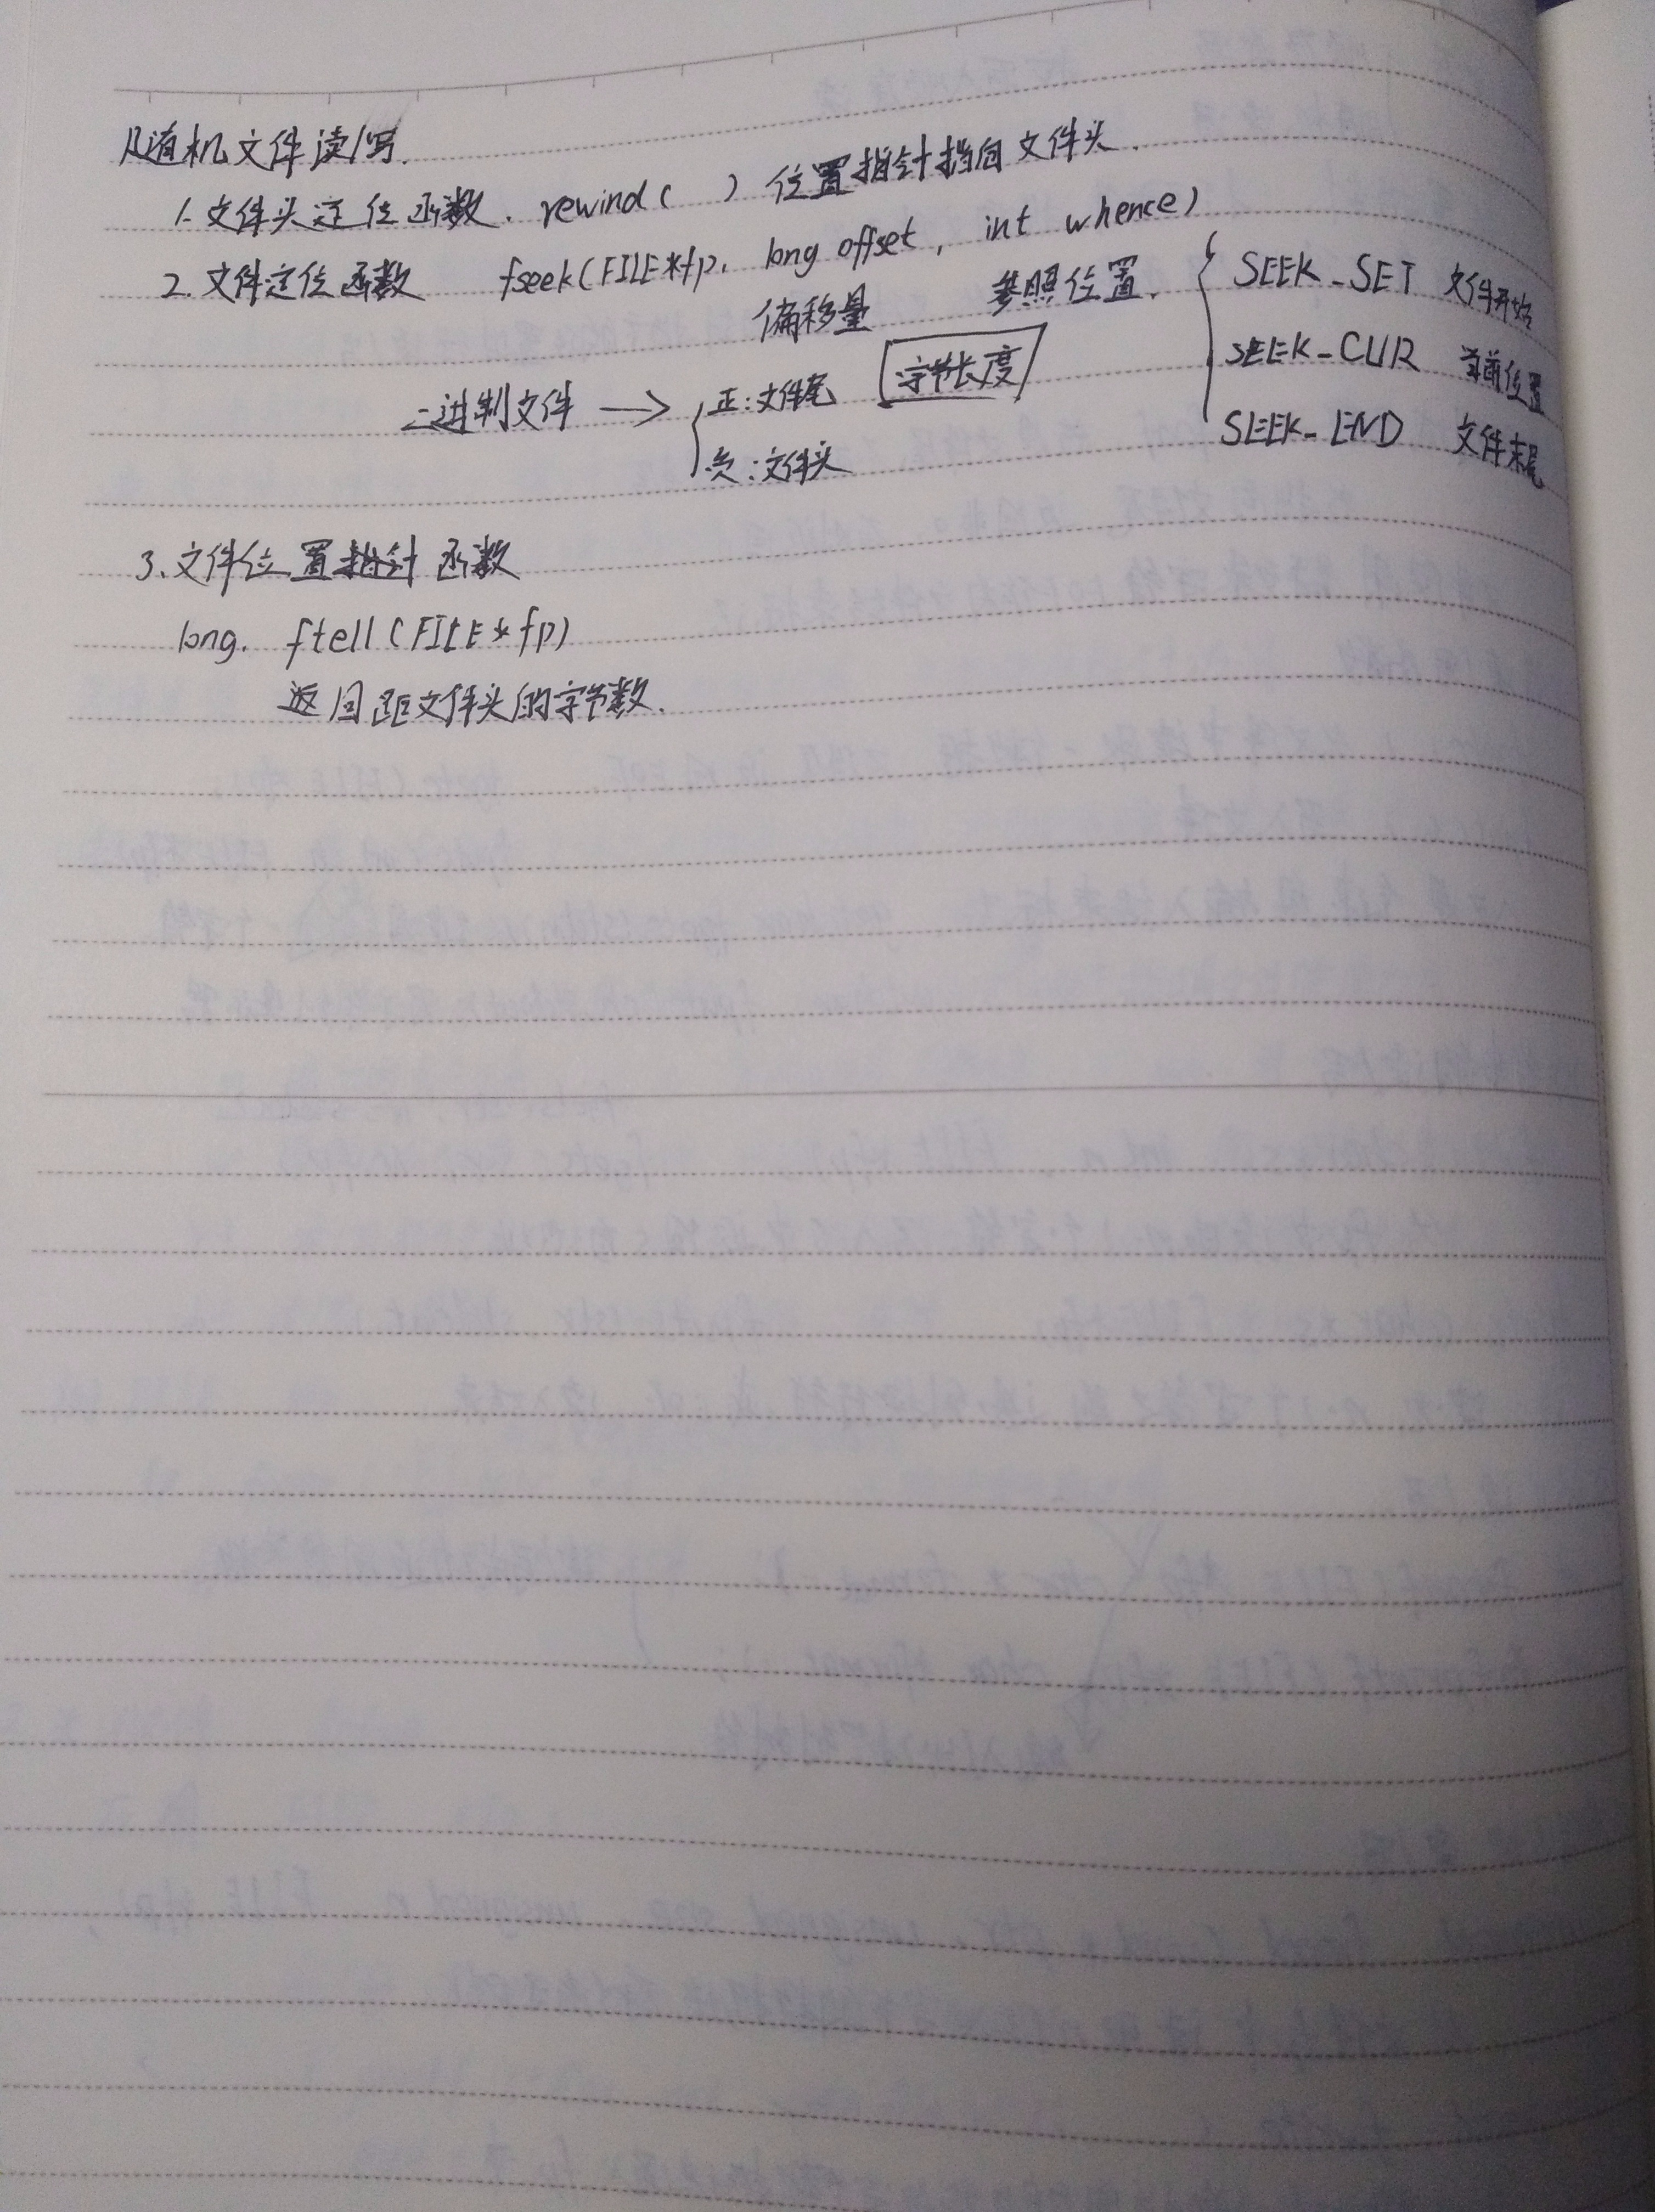 随机文件读/写.
1. 文件头定位函数. rewind( ) 位置指针指向文件头.
2. 文件定位函数 fseek(FILE*fp, long offset, int whence)
偏移量 参照位置. { SEEK_SET 文件开始
SEEK_CUR 当前位置
SEEK_END 文件末尾
二进制文件 → { 正:文件尾 字节长度
负:文件头
3. 文件位置指针函数
long. ftell(FILE*fp)
返回距文件头的字节数.